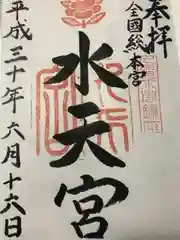 奉拝
全国総本宮
水天宮
平成三十年六月十六日